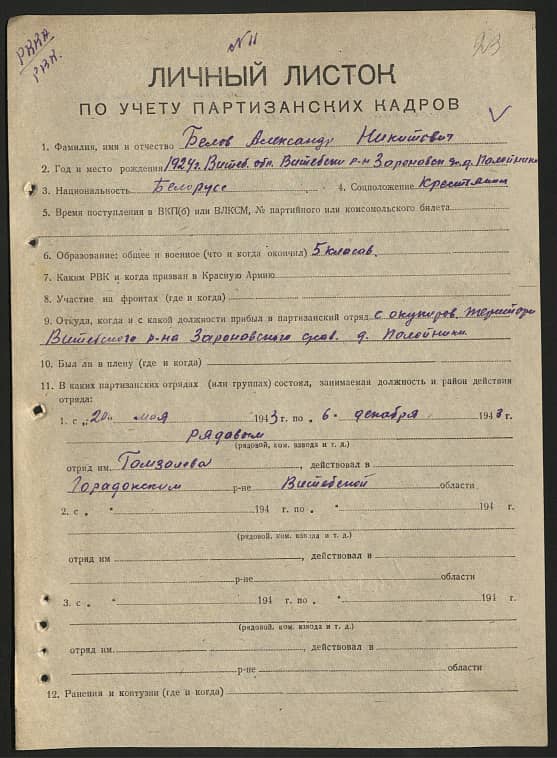 РККА
РВК.
№ 11
23
ЛИЧНЫЙ ЛИСТОК
ПО УЧЕТУ ПАРТИЗАНСКИХ КАДРОВ
1. Фамилия, имя и отчество Белов Александр Никитович
2. Год и место рождения 1924г. Витеб. обл. Витебски р-н Зароновск д. Полойники
3. Национальность Белорусс 4. Соцположение Крестянин
5. Время поступления в ВКП(б) или ВЛКСМ, № партийного или комсомольского билета
6. Образование: общее и военное (что и когда окончил) 5 класав.
7. Каким РВК и когда призван в Красную Армию
8. Участие на фронтах (где и когда)
9. Откуда, когда и с какой должности прибыл в партизанский отряд с окупиров. територи
Витебского р-на Зароновского д. Полойники
10. Был ли в плену (где и когда)
11. В каких партизанских отрядах (или группах) состоял, занимаемая должность и район действия
отряда:
1. с „20" мая 1943 г. по „6" декабря 1943 г.
рядавым
(рядовой, ком. взвода и т. д.)
отряд им. , действовал в
Гарадокским р-не Витебской области
2. с „ " 194 г. по „ " 194 г.
(рядовой, ком. взвода и т. д.)
отряд им , действовал в
р-не области
3. с „ " 194 г. по „ " 194 г.
(рядовой, ком. взвода и т. д.)
отряд им. , действовал в
р-не области
12. Ранения и контузии (где и когда)